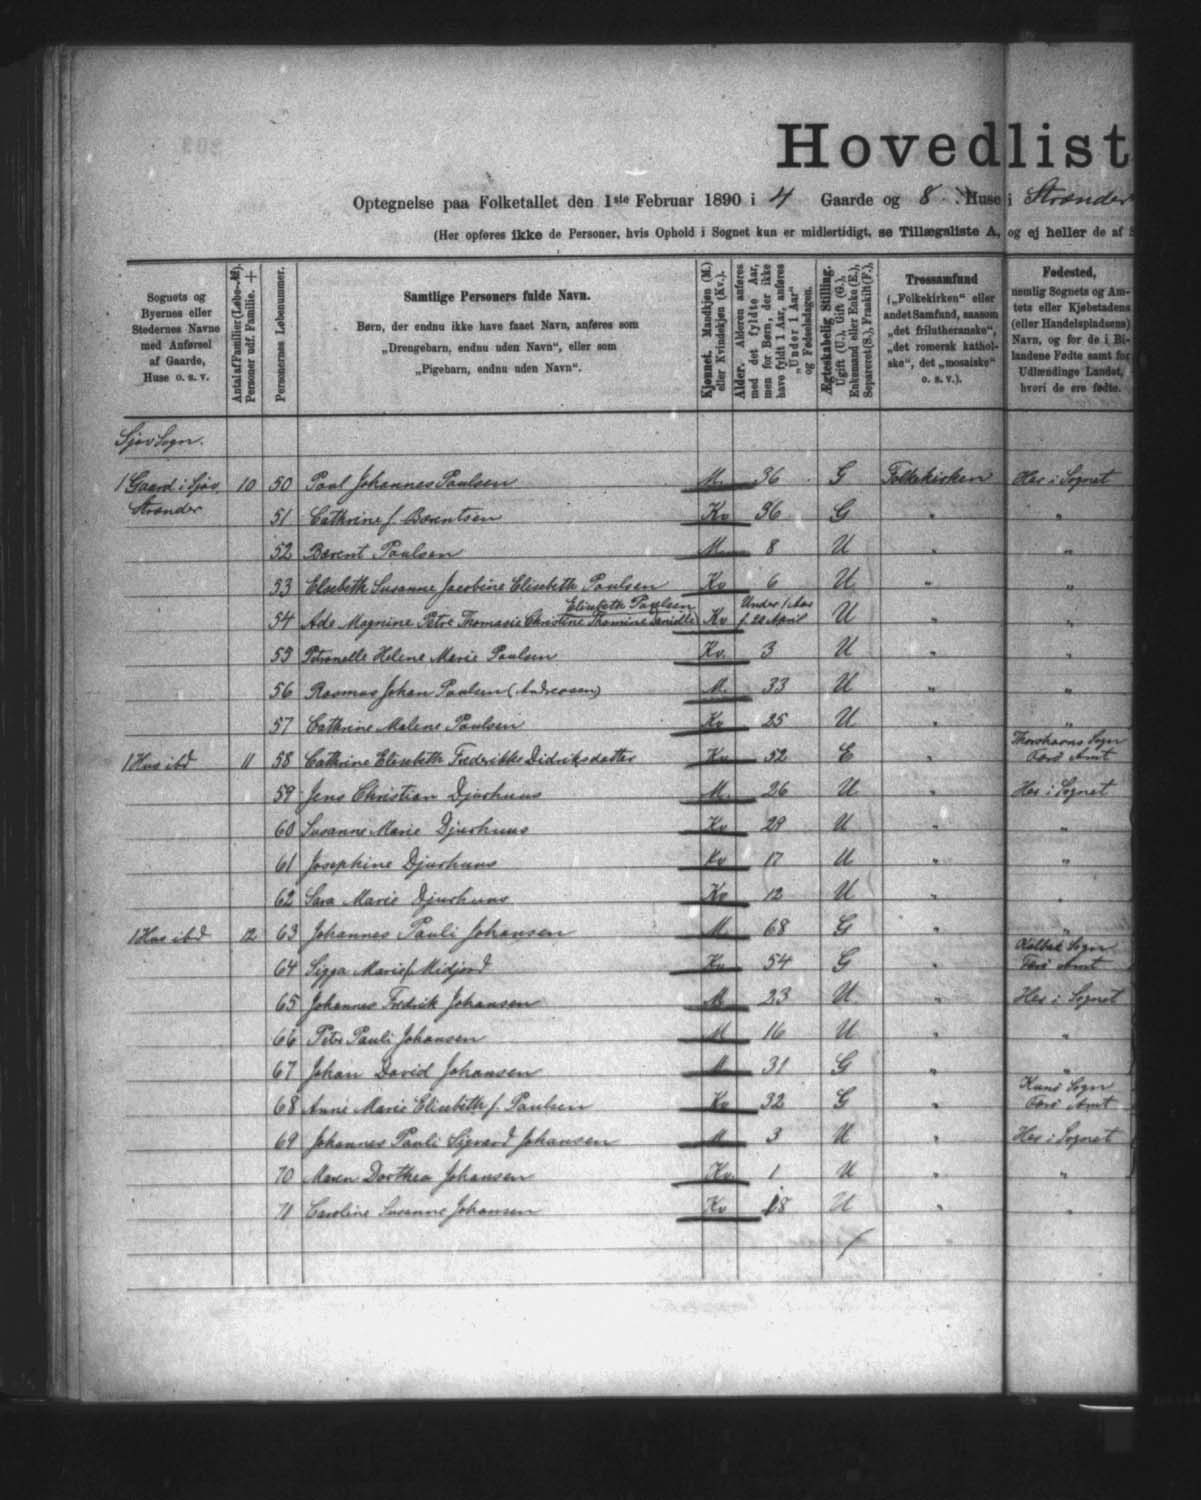 Hovedlist
Optegnelse paa Folketallet den 1ste Februar 1890 i 4 Gaarde og 8 Huse i Strænder
(Her opføres ikke de Personer, hvis Ophold i Sognet kun er midlertidigt, se Tillægsliste A, og ej heller de af
Sognets og Byernes eller Stedernes Navne med Anførsel af Gaarde, Huse o. s. v.
Antal af Familier (Løbe-№). Personer udf. Familie. +
Personernes Løbenummer.
Samtlige Personers fulde Navn.
Børn, der endnu ikke have faaet Navn, anføres som
„Drengebarn, endnu uden Navn“, eller som
„Pigebarn, endnu uden Navn“.
Kjønnet. Mandkjøn (M.) eller Kvindekjøn (Kv.).
Alder. Alderen anføres med det fyldte Aar, men for Børn, der ikke have fyldt 1 Aar, anføres „Under 1 Aar“ og Fødselsdagen.
Ægteskabelig Stilling. Ugift (U.), Gift (G.), Enkemand eller Enke (E.), Separeret (S.), Fraskilt (F.).
Trossamfund („Folkekirken“ eller andet Samfund, saasom „det frilutheranske“, „det romersk katholske“, det „mosaiske“ o. s. v.).
Fødested, nemlig Sognets og Amtets eller Kjøbstadens (eller Handelspladsens) Navn, og for de i Bilandene Fødte samt for Udlændinge Landet, hvori de ere fødte.
Sjov Sogn.
1 Gaard i Sjov 10 50 Poul Johannes Poulsen M. 36 G Folkekirken Her i Sognet
Strænder
51 Cathrine f. Bærentsen Kv 36 G " "
52 Bærent Poulsen M. 8 U " "
53 Elsebeth Susanne Jacobine Elisebeth Poulsen Kv 6 U " "
Elisebeth Poulsen Under 1 Aar
54 Ada Magnine Petre Thomasie Christine Thomine Kv f. 28 April U " "
55 Petronelle Helene Marie Poulsen Kv. 3 U " "
56 Rasmus Johan Poulsen (Andreasen) M. 33 U " "
57 Cathrine Malene Poulsen Kv 25 U " "
Thorshavns Sogn
1 Hus ibd 11 58 Cathrine Elisebeth Frederikke Didriksdatter Kv. 52 E " Færø Amt
59 Jens Christian Djurhuus M. 26 U " Her i Sognet
60 Susanne Marie Djurhuus Kv 29 U " "
61 Josephine Djurhuus Kv 17 U " "
62 Sara Marie Djurhuus Kv 12 U " "
1 Hus ibd 12 63 Johannes Pauli Johansen M. 68 G " "
Kolbak Sogn
64 Sigga Marie f. Midjord Kv. 54 G Færø Amt
65 Johannes Fredrik Johansen M 23 U " Her i Sognet
66 Peter Pauli Johansen M 16 U " "
67 Johan David Johansen M 31 G " "
Kunø Sogn
68 Anne Marie Elisebeth f. Poulsen Kv 32 G " Færø Amt
69 Johannes Pauli Sigvard Johansen M. 3 U " Her i Sognet
70 Maren Dorthea Johansen Kv. 1 U " "
71 Caroline Susanne Johansen Kv 18 U " "